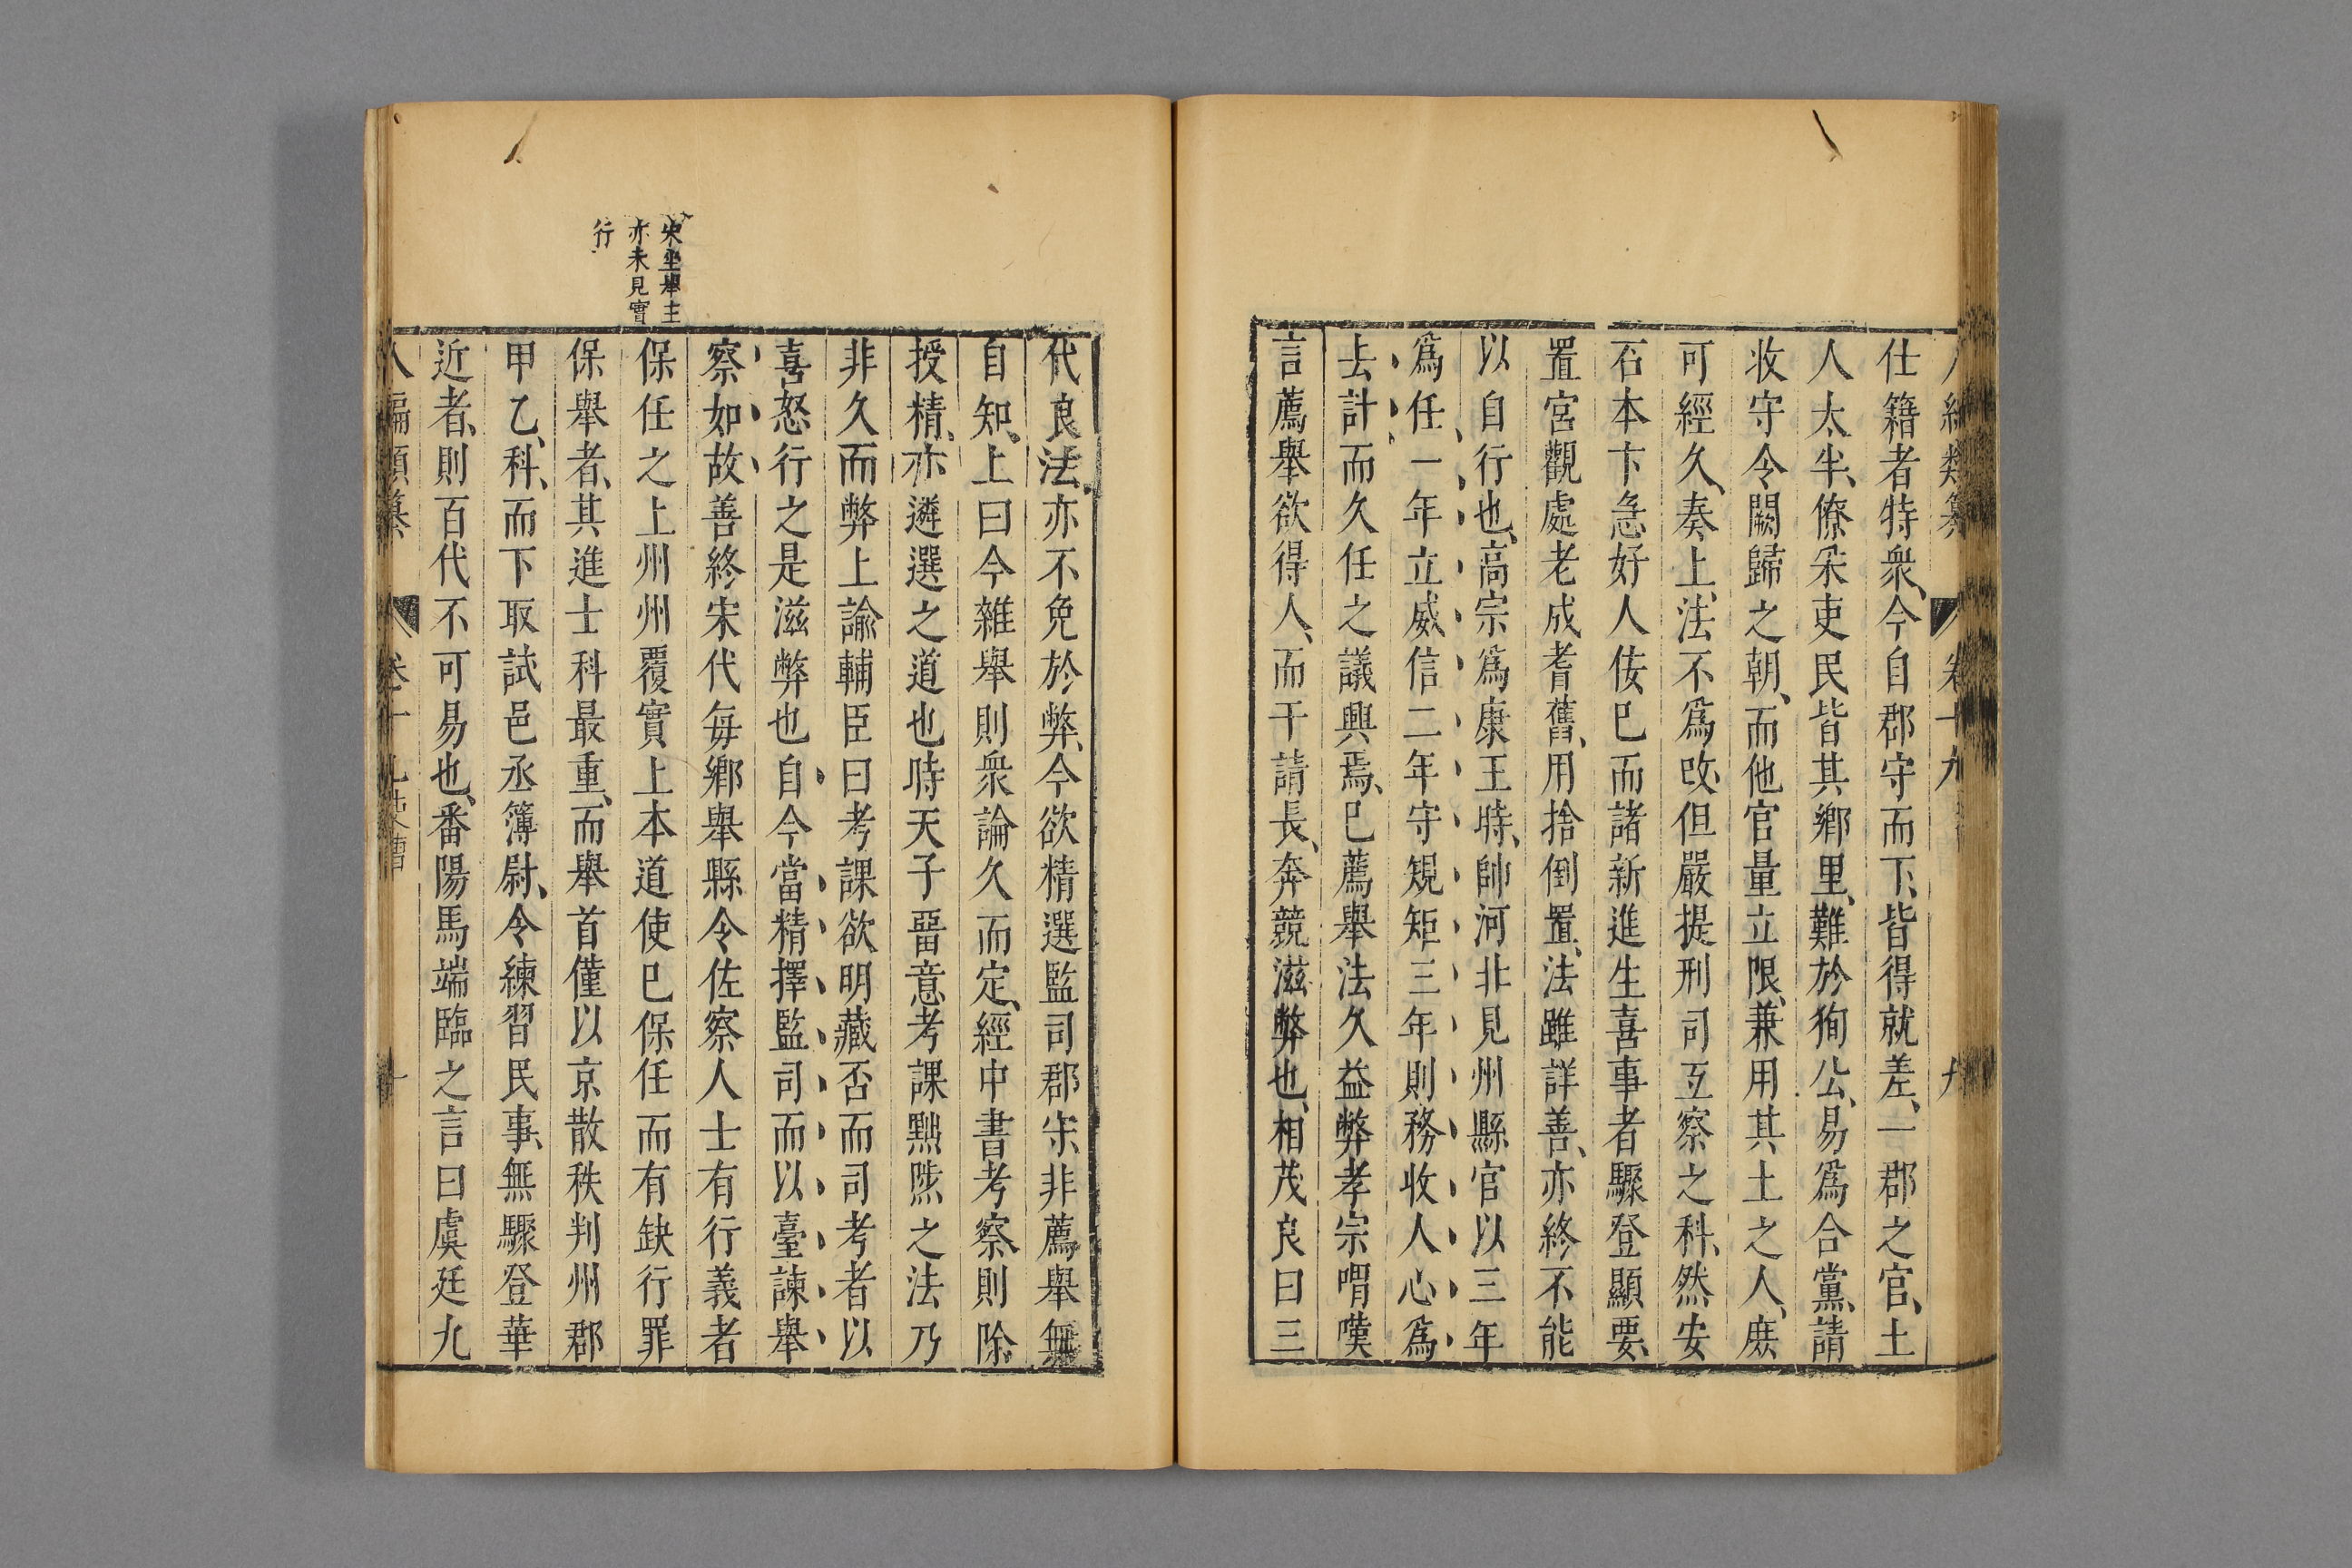 仕籍者特衆、今自郡守而下、皆得就差、一郡之官、土
人太半、僚宷吏民皆其鄉里、難於狥公、易爲合黨、請
收守令闕歸之朝、而他官量立限、兼用其土之人、庻
可經久、奏上、法不爲改、但嚴提刑司互察之科、然安
石本卞急好人佞已而諸新進生喜事者驟登顯要、
置宮觀處老成耆舊、用捨倒置、法雖詳善、亦終不能
以自行也、高宗爲康王時、帥河非見州縣官以三年
爲任、一年立威信二年守規矩三年則務收人心爲
去計而久任之議興焉、已薦舉法久益弊孝宗喟嘆
言薦舉欲得人、而干請長、奔競滋弊也、相茂良曰三
代良法、亦不免於弊、今欲精選監司郡守非薦舉無
自知、上曰今雜舉則衆論久而定、經中書考察則除
授精、亦遴選之道也時天子畱意考課黜陟之法乃
非久而弊上諭輔臣曰考課欲明藏否而司考者以
喜怒行之是滋弊也自今當精擇監司而以臺諫舉
察如故善終宋代每鄉舉縣令佐察人士有行義者
保任之上州州覆實上本道使已保任而有缺行罪
保舉者、其進士科最重、而舉首僅以京散秩判州郡
甲乙、科、而下取試邑丞簿尉、令練習民事、無驟登華
近者、則百代不可易也、番陽馬端臨之言曰虞廷九
宋坐舉主
亦未見實
行